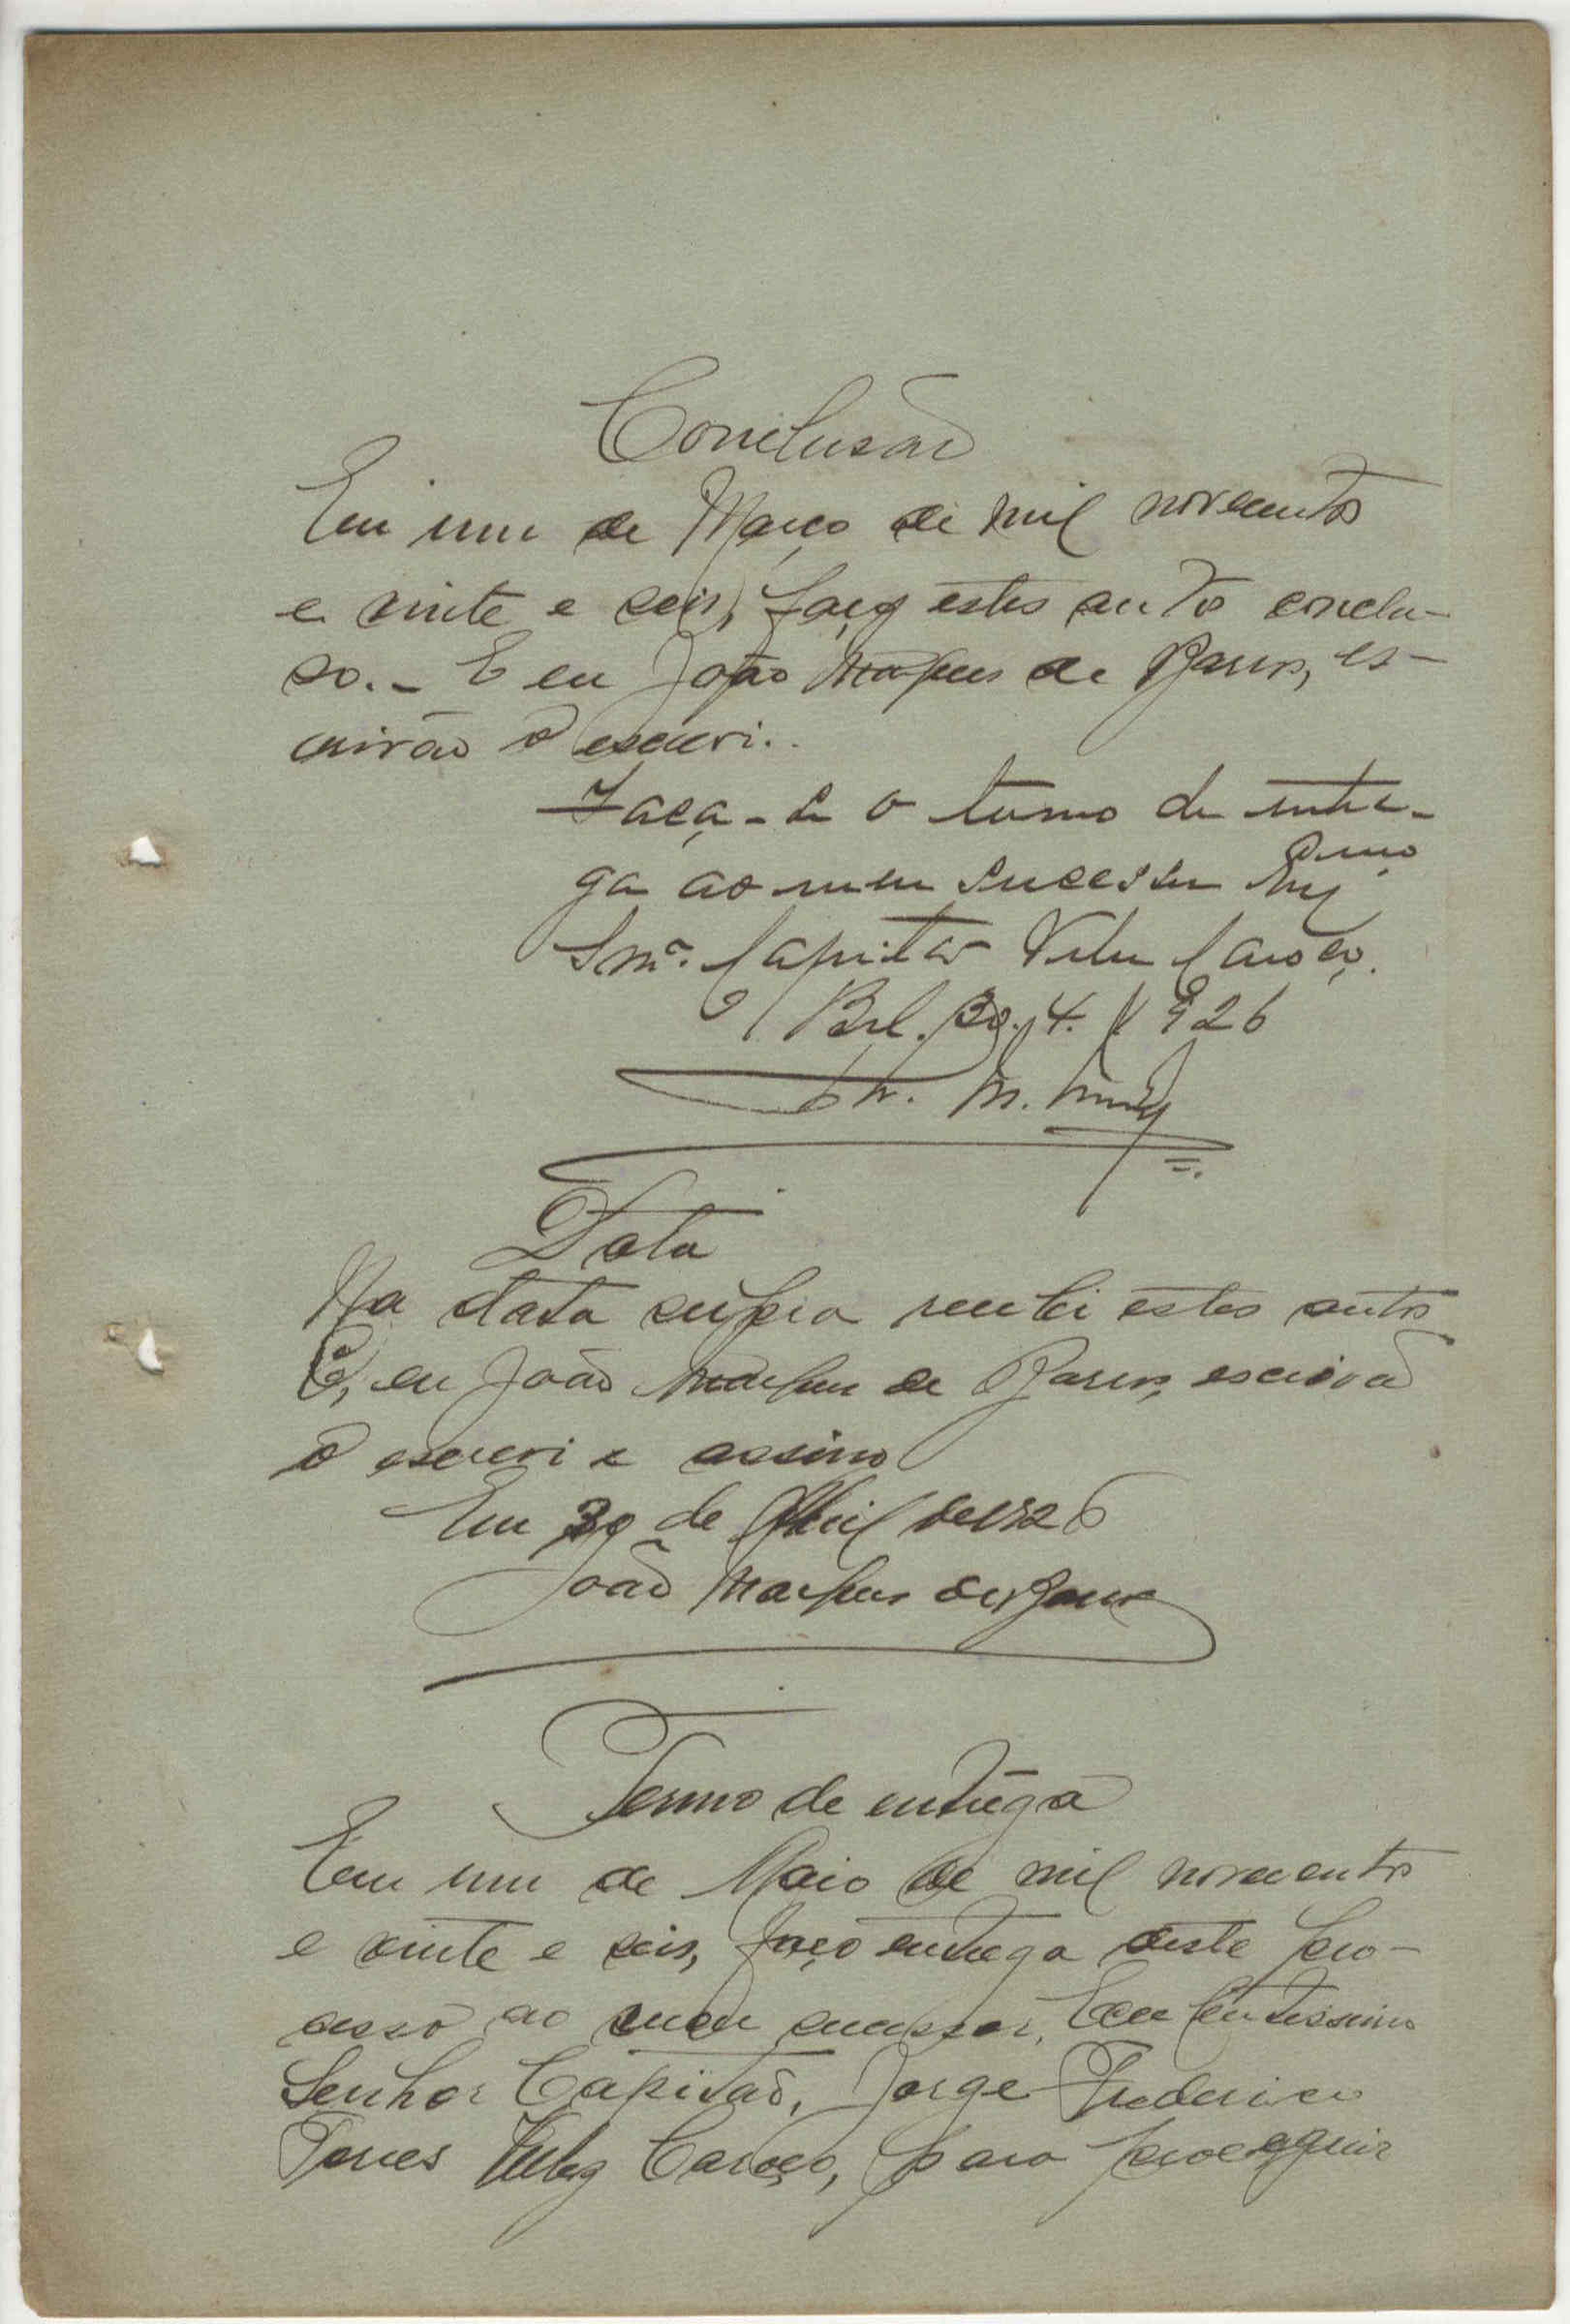 Conclusão
Em um de Março de mil novecentos
e vinte e seis, faço estes autos conclu-
so. - E eu João Marques de Barros, es-
crivão o escrevi..
Faça-se o termo de entre-
ga ao meu sucessor
Snr. Capitão Velez Caroço.
Bol. 30. 4. 926
Data
Na data supra recebi estes autos
E, eu João Marques de Barros, escrivão
o escrevi e assino
Em 30 de Abril de 1926
João Marques de Barros
Termo de entrega
Em um de Maio de mil novecentos
e vinte e seis, faço entrega deste pro-
cesso ao meu sucessor, Excelentissimo
Senhor Capitão, Jorge Frederico
Torres Velez Caroço, para proseguir